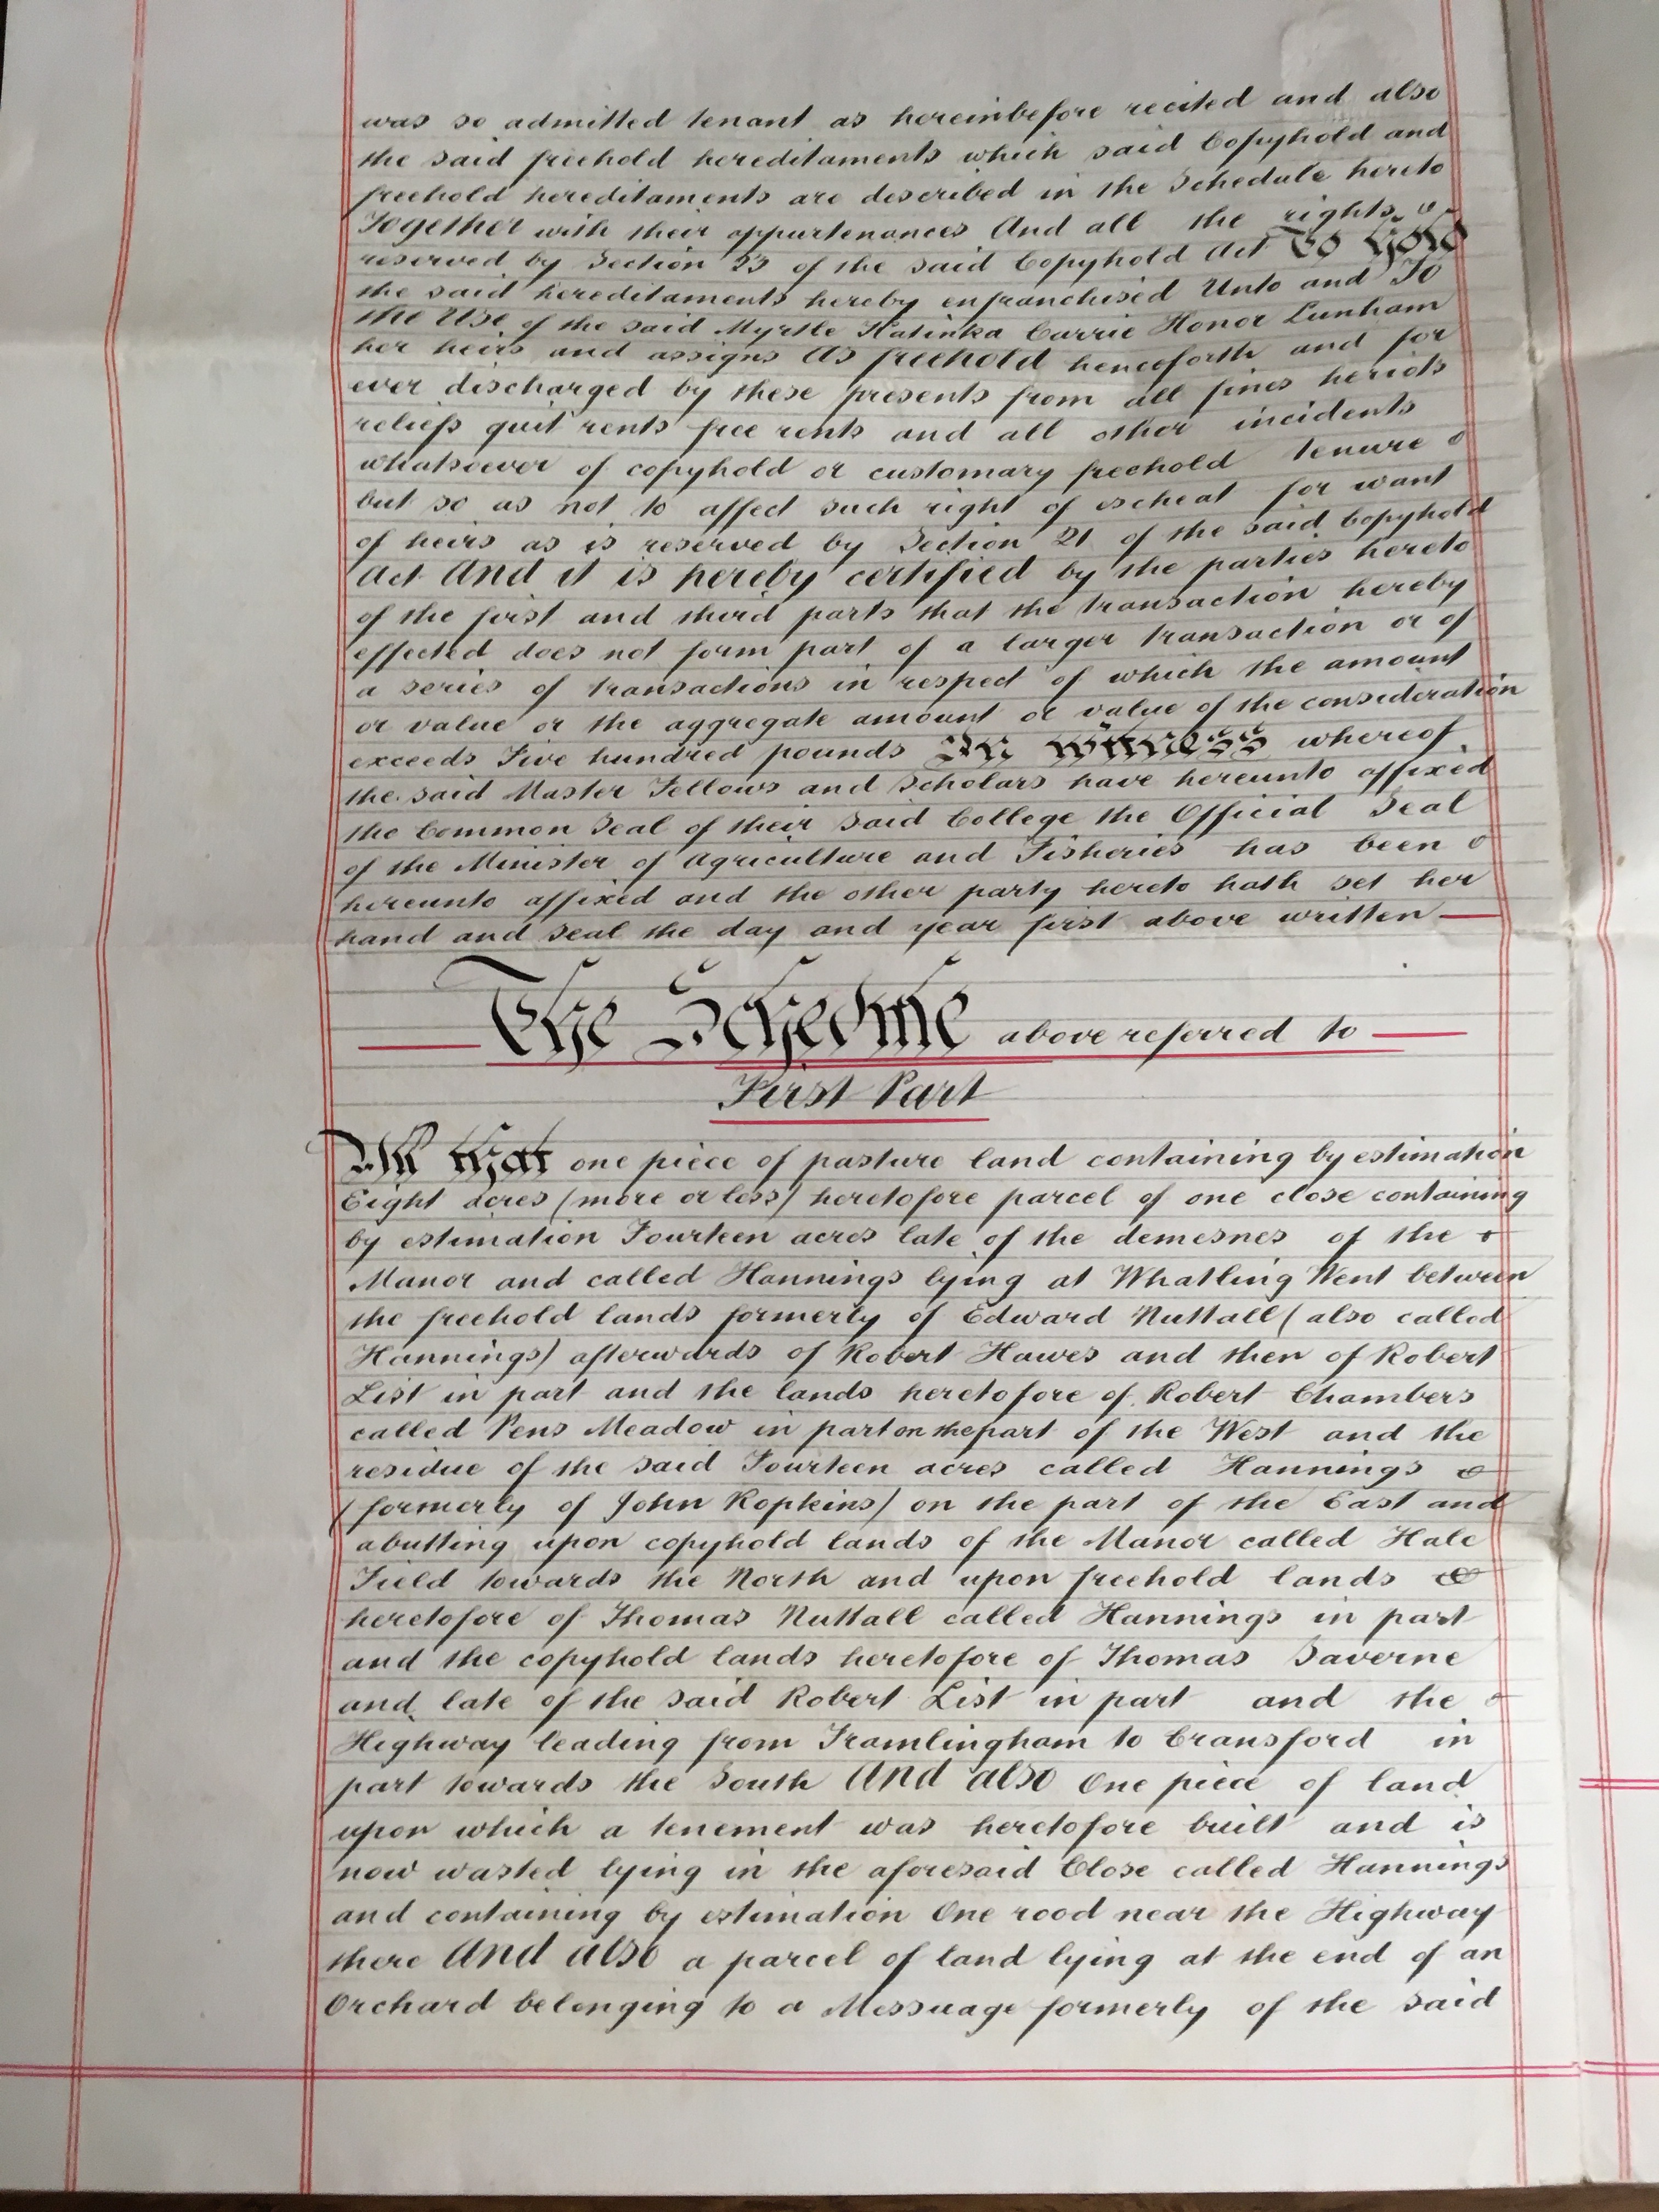 was so admitted tenant as hereinbefore recited and also
the said freehold hereditaments which said Copyhold and
freehold hereditaments are described in the Schedule hereto
Together with their appurtenances And all the rights
reserved by Section 23 of the said Copyhold Act To Hold
the said hereditaments hereby enfranchised Unto and To
the Use of the said Myrtle Katinka Carrie Honor Lunham
her heirs and assigns As freehold henceforth and for
ever discharged by these presents from all fines heriots
reliefs quit rents free rents and all other incidents
whatsoever of copyhold or customary freehold tenure
but so as not to affect such right of escheat for want
of heirs as is reserved by Section 21 of the said Copyhold
Act And it is hereby certified by the parties hereto
of the first and third parts that the transaction hereby
effected does not form part of a larger transaction or of
a series of transactions in respect of which the amount
or value or the aggregate amount or value of the consideration
exceeds Five hundred pounds In Witness whereof
the said Master Fellows and Scholars have hereunto affixed
the Common Seal of their said College the Official Seal
of the Minister of Agriculture and Fisheries has been
hereunto affixed and the other party hereto hath set her
hand and seal the day and year first above written
The Schedule above referred to
First Part
All that one piece of pasture land containing by estimation
Eight acres (more or less) heretofore parcel of one close containing
by estimation Fourteen acres late of the demesnes of the
Manor and called Hannings lying at Whatling Went between
the freehold lands formerly of Edward Nuttall (also called
Hannings) afterwards of Robert Hawes and then of Robert
List in part and the lands heretofore of Robert Chambers
called Pens Meadow in part on the part of the West and the
residue of the said Fourteen acres called Hannings
(formerly of John Kopkins) on the part of the East and
abutting upon copyhold lands of the Manor called Hale
Field towards the North and upon freehold lands
heretofore of Thomas Nuttall called Hannings in part
and the copyhold lands heretofore of Thomas Saverne
and late of the said Robert List in part and the
Highway leading from Framlingham to Cransford in
part towards the South And also One piece of land
upon which a tenement was heretofore built and is
now wasted lying in the aforesaid Close called Hannings
and containing by estimation One rood near the Highway
there And also a parcel of land lying at the end of an
Orchard belonging to a Messuage formerly of the said